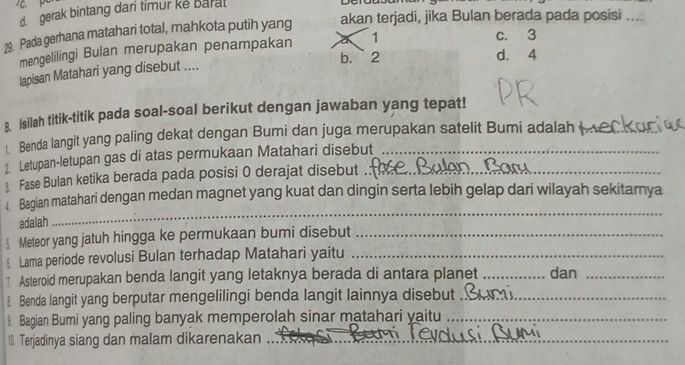 d. gerak bintang dari timur ke barat
29. Pada gerhana matahari total, mahkota putih yang
mengelilingi Bulan merupakan penampakan
lapisan Matahari yang disebut ....
akan terjadi, jika Bulan berada pada posisi ....
a. 1
b. 2
c. 3
d. 4
PR
B. Isilah titik-titik pada soal-soal berikut dengan jawaban yang tepat!
1. Benda langit yang paling dekat dengan Bumi dan juga merupakan satelit Bumi adalah
2. Letupan-letupan gas di atas permukaan Matahari disebut
3. Fase Bulan ketika berada pada posisi 0 derajat disebut fase Bulan Baru
4. Bagian matahari dengan medan magnet yang kuat dan dingin serta lebih gelap dari wilayah sekitarnya
adalah
5. Meteor yang jatuh hingga ke permukaan bumi disebut
6. Lama periode revolusi Bulan terhadap Matahari yaitu
7. Asteroid merupakan benda langit yang letaknya berada di antara planet ............ dan
8. Benda langit yang berputar mengelilingi benda langit lainnya disebut Bumi
9. Bagian Bumi yang paling banyak memperolah sinar matahari yaitu
10. Terjadinya siang dan malam dikarenakan revolusi Bumi